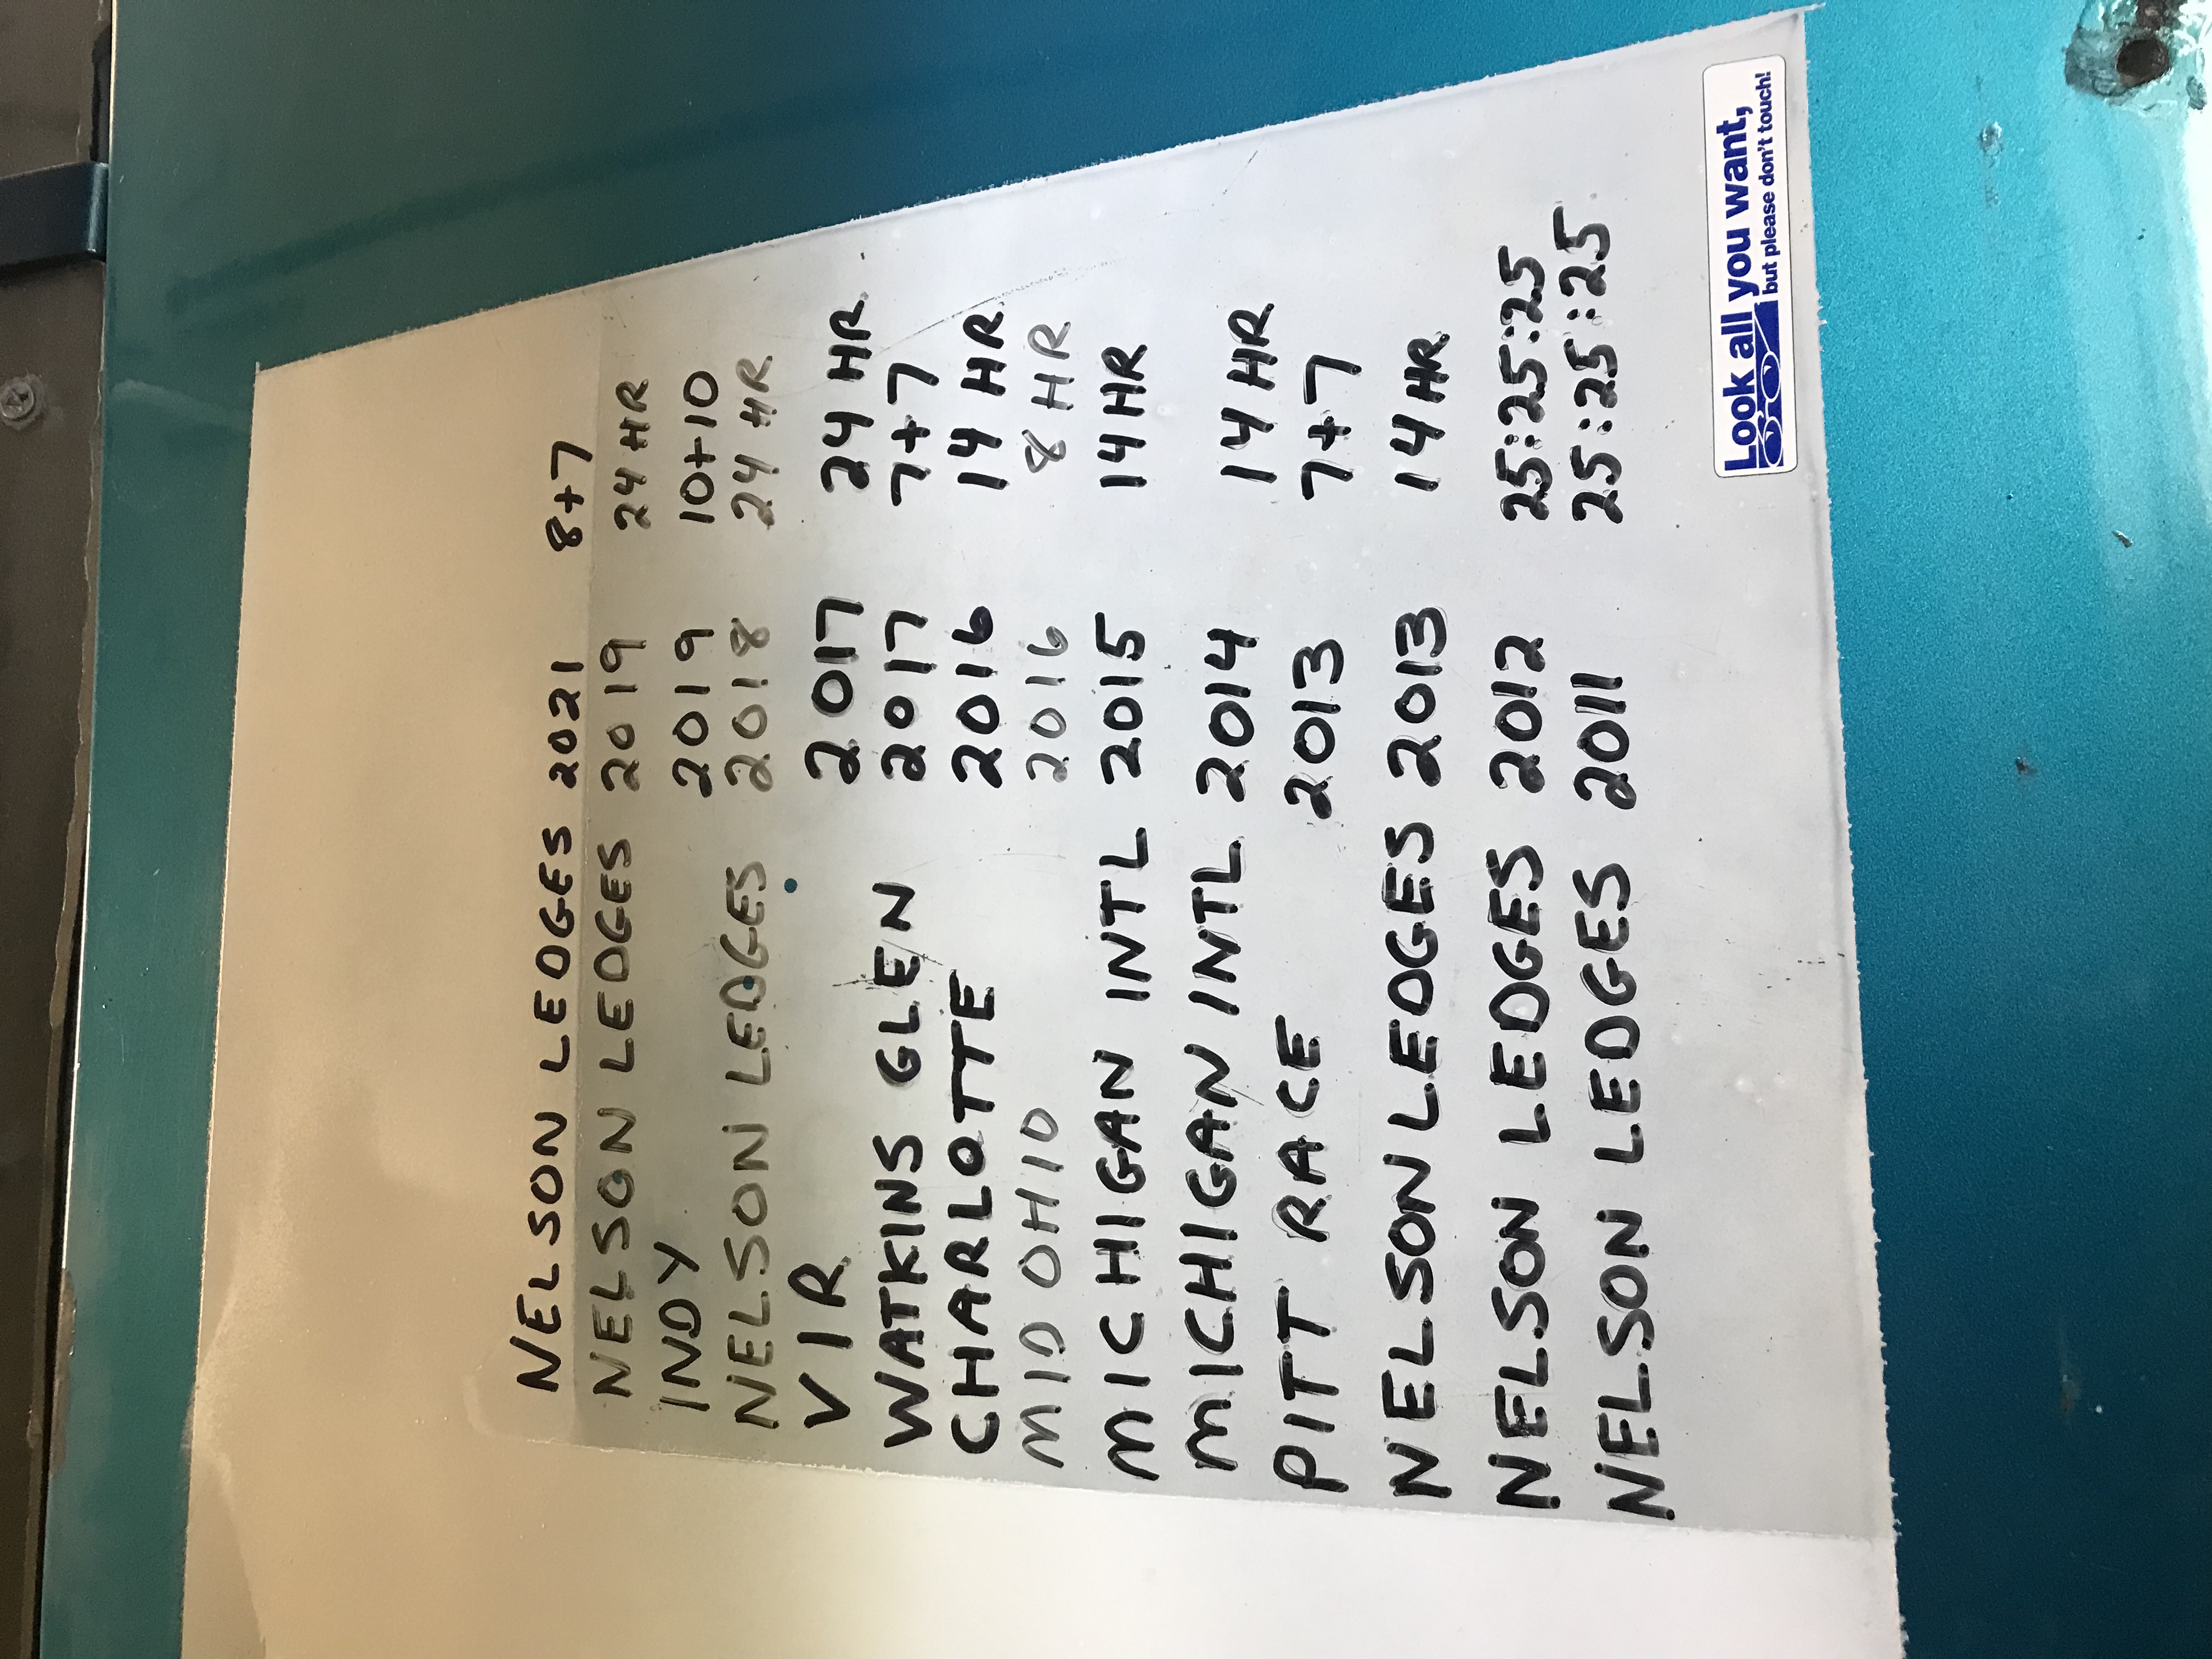 NELSON LEDGES 2021 8+7
NELSON LEDGES 2019 24 HR
INDY 2019 10+10
NELSON LEDGES 2018 24 HR
VIR 2017 24 HR
WATKINS GLEN 2017 7+7
CHARLOTTE 2016 14 HR
MID OHIO 2016 8 HR
MICHIGAN INTL 2015 14 HR
MICHIGAN INTL 2014 14 HR
PITT RACE 2013 7+7
NELSON LEDGES 2013 14 HR
NELSON LEDGES 2012 25:25:25
NELSON LEDGES 2011 25:25:25
Look all you want,
but please don't touch!